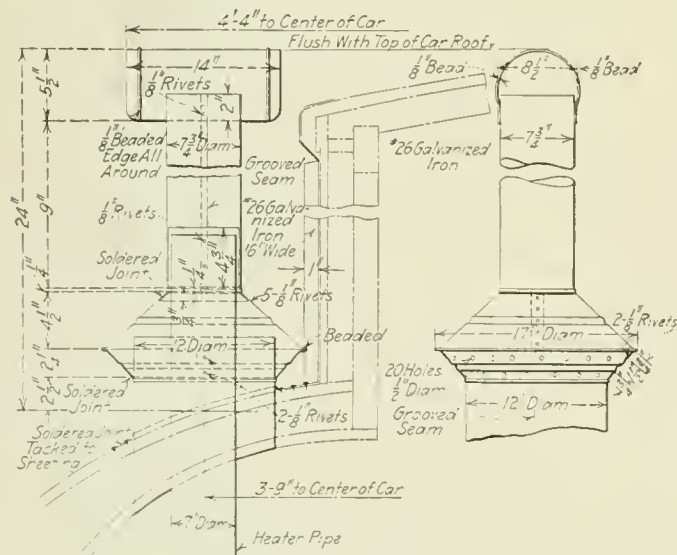 4'-4" to Center of Car
Flush With Top of Car Roof
14"
1/8" Rivets
2"
5 1/2"
1/8" Beaded
Edge All
Around
7 3/4" Diam
Grooved
Seam
1/8" Rivets
#26 Galva-
nized
Iron
16" Wide
24"
9"
Soldered
Joint
4 3/4"
1"
5-1/8" Rivets
4 1/2"
12" Diam
Beaded
2 1/2"
Soldered
Joint
2-1/8" Rivets
Soldered Joint
Tacked to
Sheeting
3-9" to Center of Car
7" Diam
Heater Pipe
1/8" Bead
8 1/2"
1/8" Bead
7 3/4"
#26 Galvanized
Iron
2-1/8" Rivets
17" Diam
20 Holes
1/2" Diam
Grooved
Seam
12" Diam